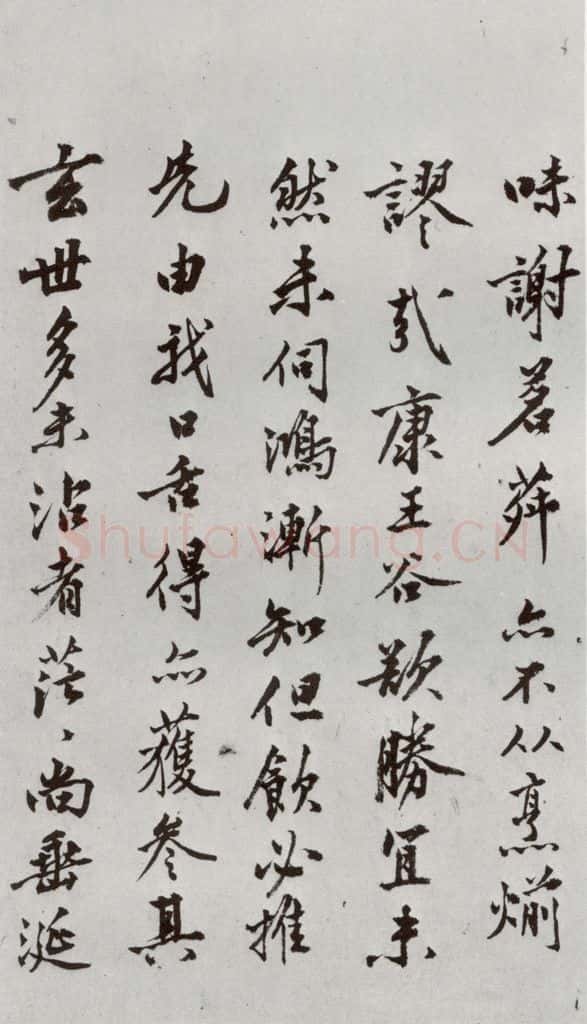 味謝茗荈亦不从烹煎
謬哉康王谷勝宜未
然未伺鴻漸知但飲必推
先由我口舌得亦獲參其
玄世多未沾者茫、尚垂涎
Shufawang.CN